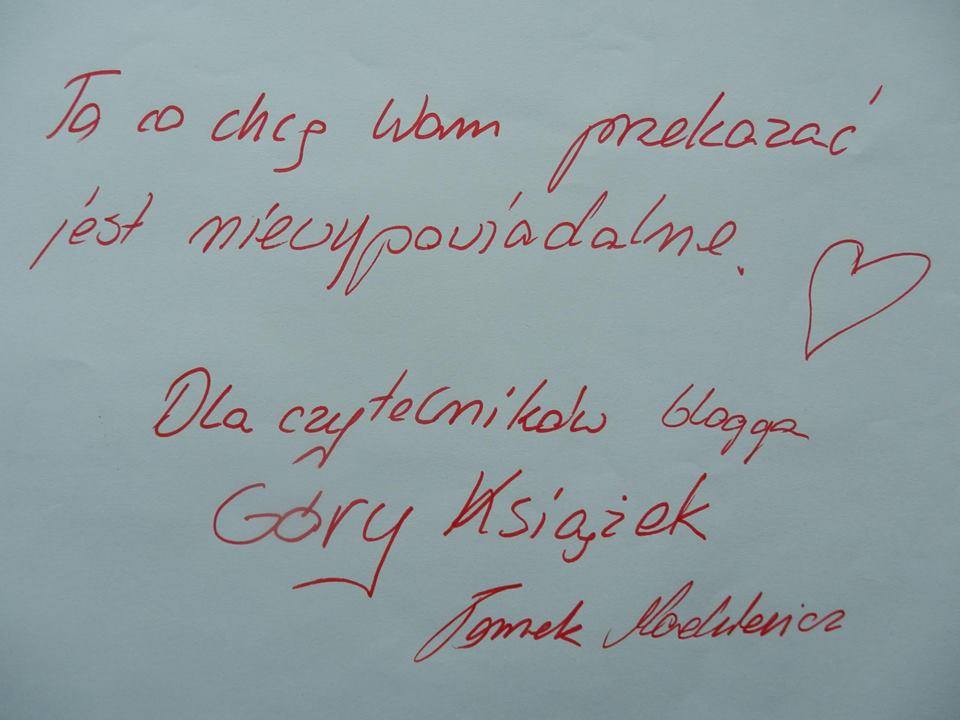 To co chcę Wam przekazać
jest niewypowiadalne.
Dla czytelników blogga
Góry Książek
Tomek Mackiewicz